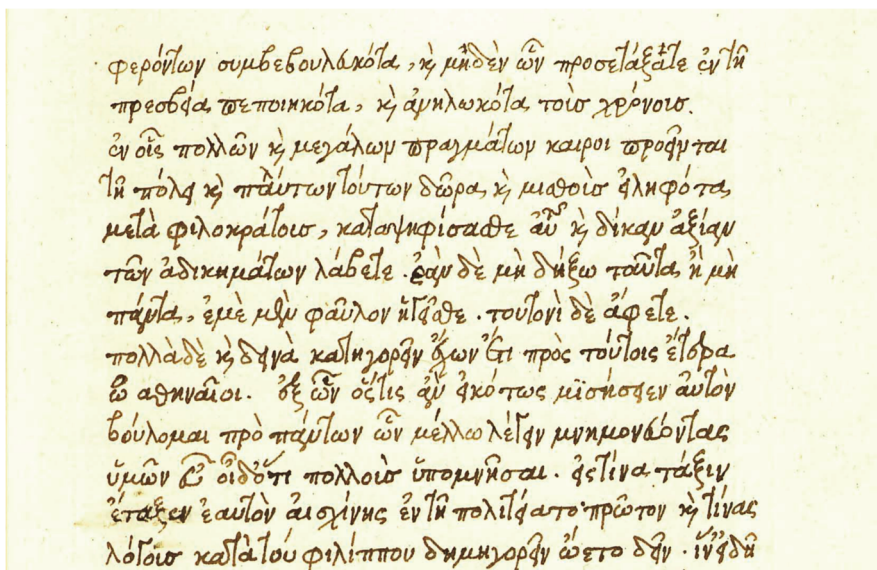 φερόντων συμβεβουλευκότα, κ̀ μηδὲν ὧν προσετάξατε ἐν τῆ
πρεσβεία πεποιηκότα, κ̀ ἀνηλωκότα τοὺς χρόνους.
ἐν οἷς πολλῶν κ̀ μεγάλων πραγμάτων καιροι προεῖνται
τῆ πόλει κ̀ πάντων τούτων δῶρα κ̀ μισθοὺς εἰληφότα
μετὰ φιλοκράτους, καταψηφίσασθε αὐτοῦ κ̀ δίκην ἀξίαν
τῶν ἀδικημάτων λάβετε. ἐὰν δὲ μὴ δείξω ταῦτα ἢ μὴ
πάντα, ἐμὲ μὲν φαῦλον ἡγεῖσθε. τουτονὶ δὲ ἄφετε.
πολλὰ δὲ κ̀ δεινὰ κατηγορεῖν ἔχων ἔτι πρὸς τούτοις ἕτερα
ὦ αθηναῖοι. ἐξ ὧν ὅστις ἂν εἰκότως μισήσειεν αὐτὸν
βούλομαι πρὸ πάντων ὧν μέλλω λέγειν μνημονεύοντας
ὑμῶν εὖ οἶδ' ὅτι πολλοὺς ὑπομνῆσαι. εἰς τίνα τάξιν
ἔταξεν ἑαυτὸν αισχίνης ἐν τῆ πολιτεία τὸ πρῶτον κ̀ τίνας
λόγους κατὰ τοῦ φιλίππου δημηγορεῖν ὤετο δεῖν. ἵν' εἰδῆ